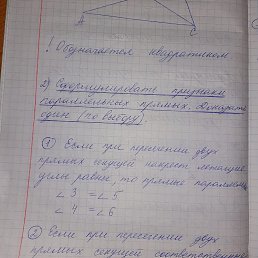 A C
! Обозначается квадратиком
2) Сформулировать признаки
параллельных прямых. Доказать
один (по выбору).
1 Если при пересечении двух
прямых секущей накрест лежащие
углы равны то прямые параллельны
∠3 = ∠5
∠4 = ∠6
2 Если при пересечении двух
прямых секущей соответственные